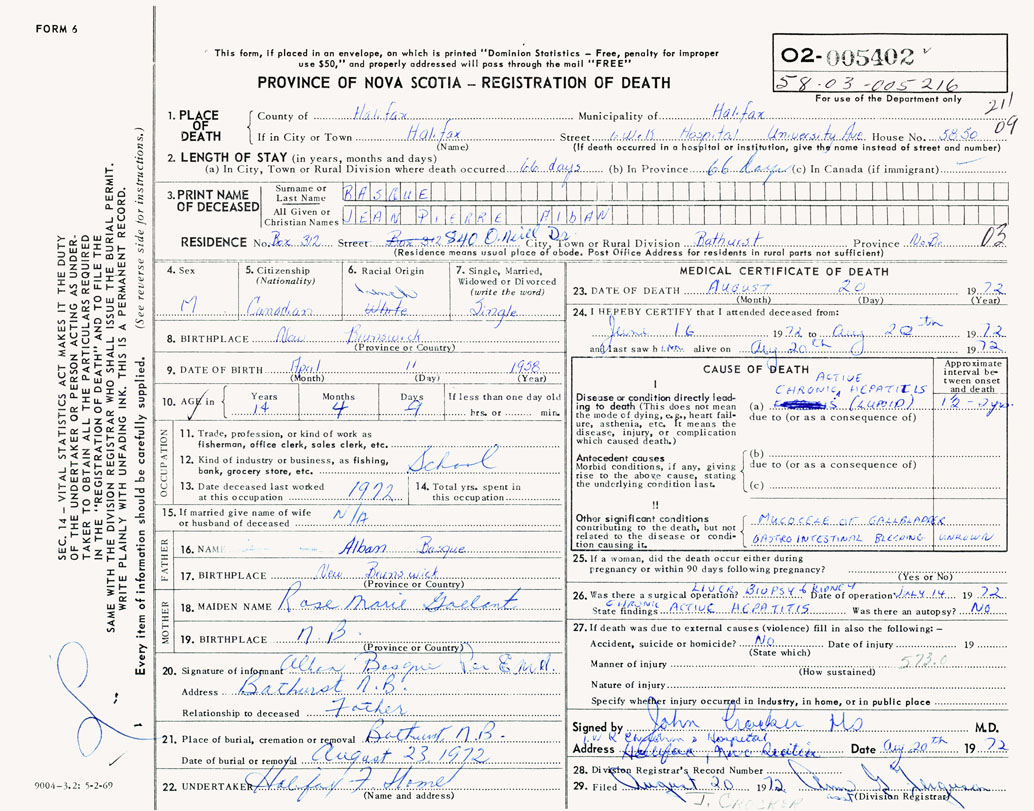 FORM 6
This form, if placed in an envelope, on which is printed "Dominion Statistics – Free, penalty for improper
use $50," and properly addressed will pass through the mail "FREE"
PROVINCE OF NOVA SCOTIA – REGISTRATION OF DEATH
02-005402
58-03-005216
For use of the Department only
211
09
1. PLACE OF DEATH
County of Halifax Municipality of Halifax
If in City or Town Halifax Street I.W.K Hospital University Ave. House No. 5850
(Name) (If death occurred in a hospital or institution, give the name instead of street and number)
2. LENGTH OF STAY (in years, months and days)
(a) In City, Town or Rural Division where death occurred 66 days (b) In Province 66 days (c) In Canada (if immigrant)
3. PRINT NAME OF DECEASED
Surname or Last Name BASQUE
All Given or Christian Names JEAN PIERRE ALBAN
RESIDENCE No. Box 312 Street Box 312 840 O.Neill Dr. City, Town or Rural Division Bathurst Province N.B. 03
(Residence means usual place of abode. Post Office Address for residents in rural parts not sufficient)
4. Sex M
5. Citizenship (Nationality) Canadian
6. Racial Origin French White
7. Single, Married, Widowed or Divorced (write the word) Single
8. BIRTHPLACE New Brunswick
(Province or Country)
9. DATE OF BIRTH April 11 1958
(Month) (Day) (Year)
10. AGE in Years 14 Months 4 Days 9 If less than one day old hrs. or min.
OCCUPATION
11. Trade, profession, or kind of work as fisherman, office clerk, sales clerk, etc.
12. Kind of industry or business, as fishing, bank, grocery store, etc. School
13. Date deceased last worked at this occupation 1972
14. Total yrs. spent in this occupation
15. If married give name of wife or husband of deceased N/A
FATHER
16. NAME Alban Basque
17. BIRTHPLACE New Brunswick
(Province or Country)
MOTHER
18. MAIDEN NAME Rose Marie
19. BIRTHPLACE N.B.
(Province or Country)
20. Signature of informant Basque Per E.M.A.
Address Bathurst N.B.
Relationship to deceased Father
21. Place of burial, cremation or removal Bathurst N.B.
Date of burial or removal August 23, 1972
22. UNDERTAKER Halifax F. Home
(Name and address)
MEDICAL CERTIFICATE OF DEATH
23. DATE OF DEATH AUGUST 20 1972
(Month) (Day) (Year)
24. I HEREBY CERTIFY that I attended deceased from:
June 16 1972 to Aug 20th 1972
and last saw him alive on Aug 20th 1972
CAUSE OF DEATH
Approximate interval between onset and death
I
Disease or condition directly leading to death (This does not mean the mode of dying, e.g., heart failure, asthenia, etc. It means the disease, injury, or complication which caused death.)
ACTIVE
CHRONIC HEPATITIS
(a) (LUPOID) 1½-2yrs.
due to (or as a consequence of)
Antecedent causes
Morbid conditions, if any, giving rise to the above cause, stating the underlying condition last.
(b)
due to (or as a consequence of)
(c)
II
Other significant conditions contributing to the death, but not related to the disease or condition causing it.
MUCOCELE OF GALLBLADDER
GASTROINTESTINAL BLEEDING UNKNOWN
25. If a woman, did the death occur either during pregnancy or within 90 days following pregnancy?
(Yes or No)
LIVER BIOPSY & KIDNEY
26. Was there a surgical operation? Date of operation JULY 14 1972
State findings CHRONIC ACTIVE HEPATITIS Was there an autopsy? NO
27. If death was due to external causes (violence) fill in also the following: –
Accident, suicide or homicide? NO Date of injury 19
(State which)
573.0
Manner of injury
(How sustained)
Nature of injury
Specify whether injury occurred in industry, in home, or in public place
Signed by John Crocker MD M.D.
I W K Children's Hospital
Address Halifax, Nova Scotia Date Aug 20th 1972
28. Division Registrar's Record Number
29. Filed August 20 1972 Ferguson
(Division Registrar)
J. CROCKER
SEC. 14 – VITAL STATISTICS ACT MAKES IT THE DUTY
OF THE UNDERTAKER OR PERSON ACTING AS UNDER-
TAKER TO OBTAIN ALL THE PARTICULARS REQUIRED
IN THE "REGISTRATION OF DEATH" AND TO FILE THE
SAME WITH THE DIVISION REGISTRAR WHO SHALL ISSUE THE BURIAL PERMIT.
WRITE PLAINLY WITH UNFADING INK. THIS IS A PERMANENT RECORD.
Every item of information should be carefully supplied. (See reverse side for instructions.)
9004-3.2: 5-2-69